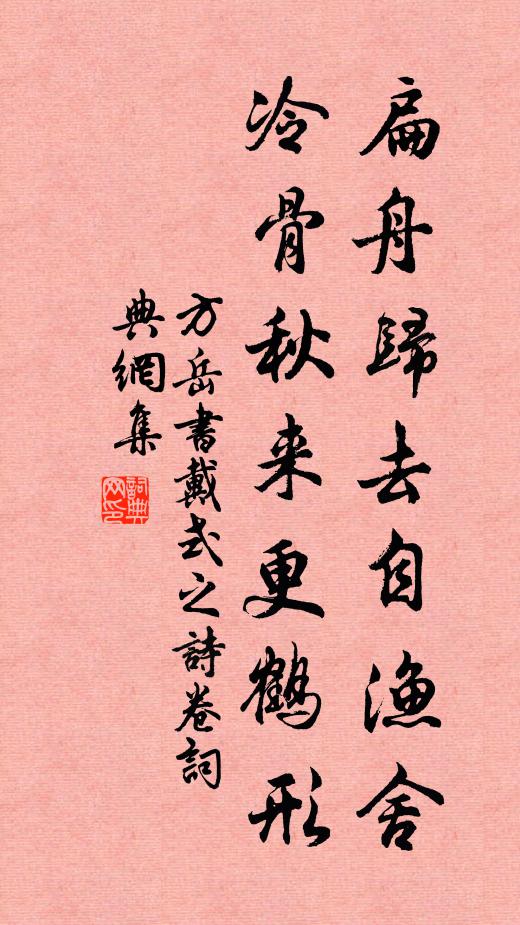 扁舟歸去自漁舍
冷骨秋来更鶴形
方岳書戴式之詩卷詞
典網集
詞典网印